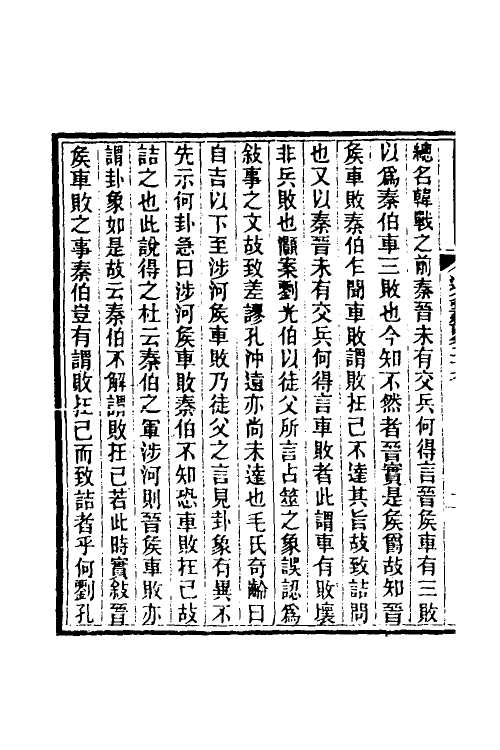 總名韓戰之前秦晉未有交兵何得言晉矦車有三敗
以爲秦伯車三敗也今知不然者晉實是矦爵故知晉
矦車敗秦伯乍聞車敗謂敗在己不達其旨故致詰問
也又以秦晉未有交兵何得言車敗者此謂車有敗壞
非兵敗也顧案劉光伯以徒父所言占筮之象誤認爲
敍事之文故致差謬孔沖遠亦尚未達也毛氏奇齡曰
自吉以下至涉河矦車敗乃徒父之言見卦象有異不
先示何卦急曰涉河矦車敗秦伯不知恐車敗在己故
詰之也此說得之杜云秦伯之軍涉河則晉矦車敗亦
謂卦象如是故云秦伯不解謂敗在己若此時實敍晉
矦車敗之事秦伯豈有謂敗在己而致詰者乎何劉孔